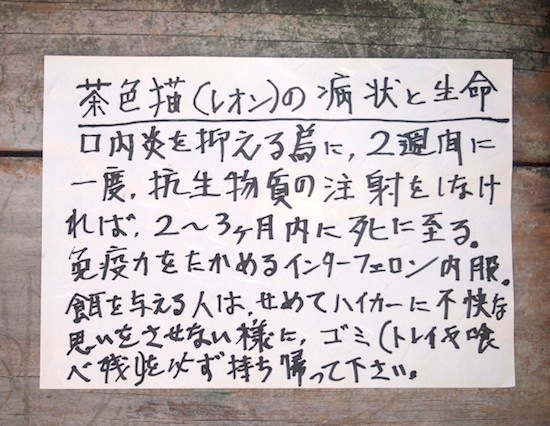 茶色描(レオン)の病状と生命
口内炎を抑える為に、2週間に
一度、抗生物質の注射をしなけ
れば、2〜3ヶ月内に死に至る。
免疫力をたかめるインターフェロン内服。
餌を与える人は、せめてハイカーに不快な
思いをさせない様に、ゴミ(トレイや喰
べ残り)を必ず持ち帰って下さい。